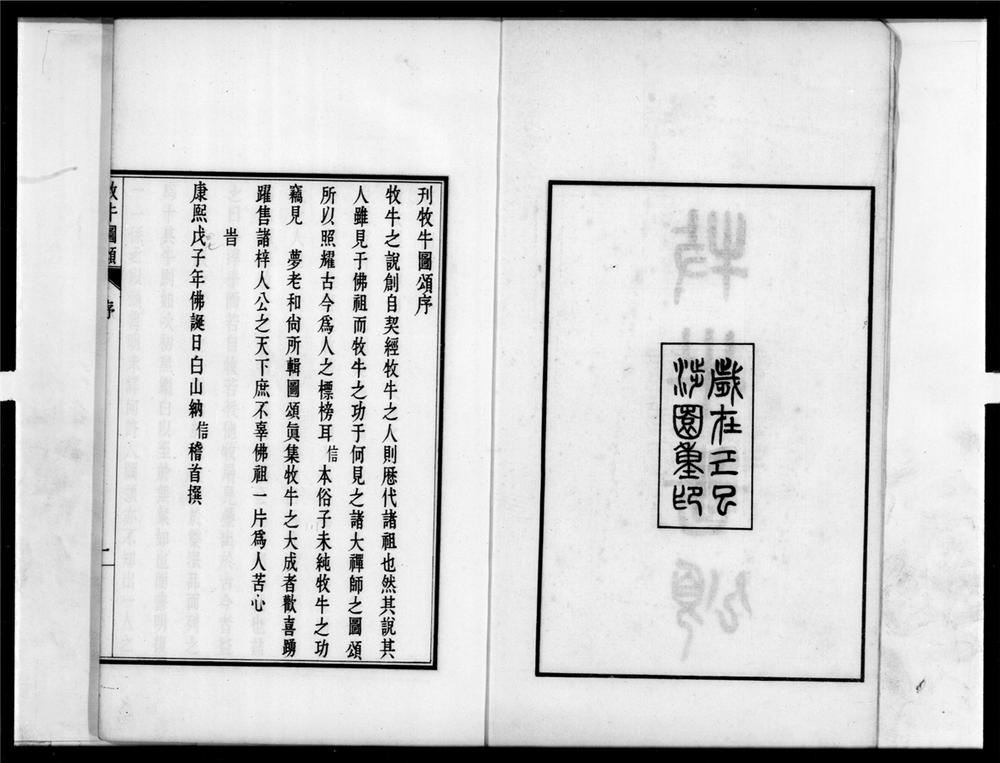 歲在辛巳
涉園重印
刊牧牛圖頌序
牧牛之說創自契經牧牛之人則歷代諸祖也然其說其
人雖見于佛祖而牧牛之功于何見之諸大禪師之圖頌
所以照耀古今爲人之標榜耳信本俗子未純牧牛之功
竊見 夢老和尙所輯圖頌眞集牧牛之大成者歡喜踴
躍售諸梓人公之天下庶不辜佛祖一片爲人苦心
旹
康熙戊子年佛誕日白山納信稽首撰
牧牛圖頌 序 一